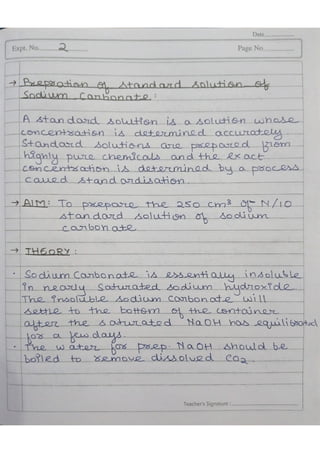 Date
Expt. No. 2
Page No.
→ Preparation of standard solution of
Sodium Carbonate :
A standard solution is a solution whose
concentration is determined accurately
Standard solutions are prepared from
highly pure chemicals and the exact
concentration is determined by a process
called standardisation.
→ AIM: To prepare the 250 cm³ of N/10
standard solution of sodium
carbonate
→ THEORY :
· Sodium Carbonate is essentially insoluble
in nearly saturated sodium hydroxide.
The insoluble sodium carbonate will
settle to the bottom of the container
after the saturated NaOH has equilibrated
for a few days.
· The water for prep. NaOH should be
boiled to remove dissolved CO₂.
Teacher's Signature :